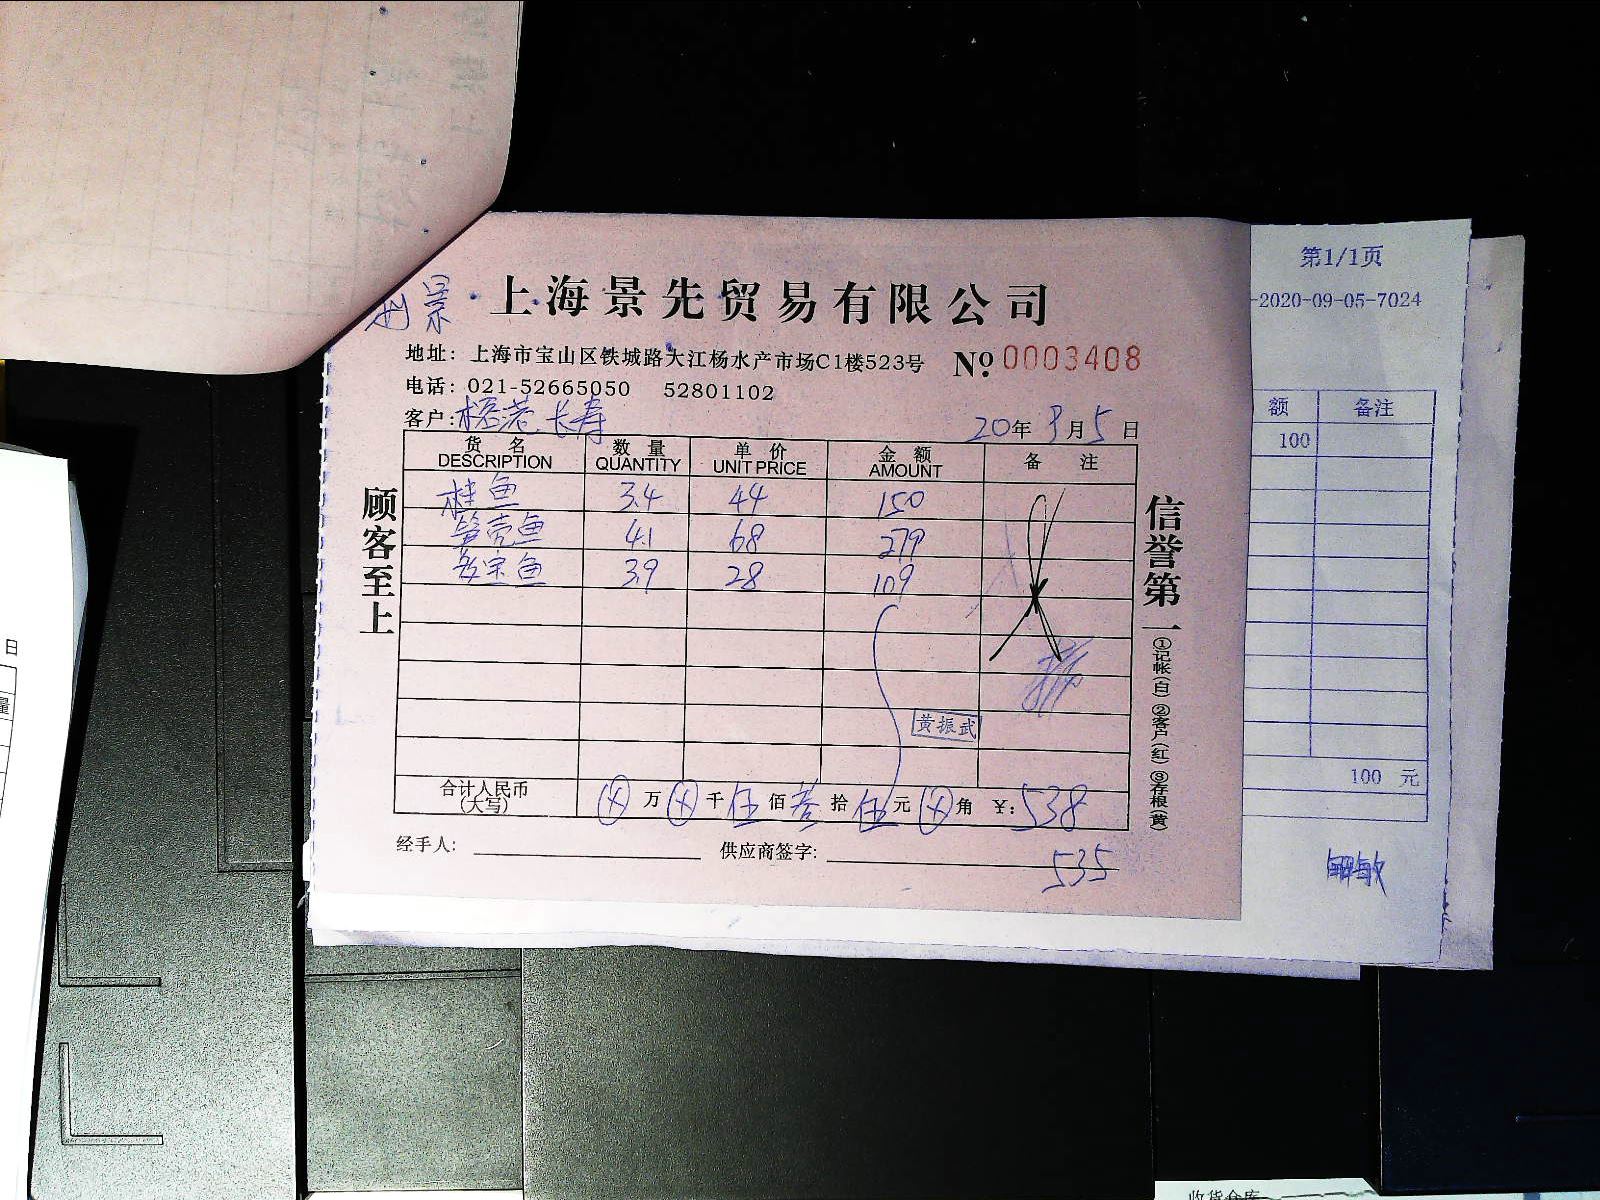 景
上海景先贸易有限公司
地址：上海市宝山区铁城路大江杨水产市场C1楼523号 Nº 0003408
电话：021-52665050 52801102
客户：长寿 20年9月5日
货名 数量 单价 金额 备注
DESCRIPTION QUANTITY UNIT PRICE AMOUNT
桂鱼 3.4 44 150
笋壳鱼 4.1 68 279
多宝鱼 3.9 28 109
黄振武
合计人民币 万 千 伍 佰 叁 拾 伍 元 角 ¥：538
(大写)
经手人： 供应商签字：
535
顾客至上
信誉第一
①记帐(白) ②客户(红) ③存根(黄)
第1/1页
-2020-09-05-7024
额 备注
100
100 元
日
量
收货仓库